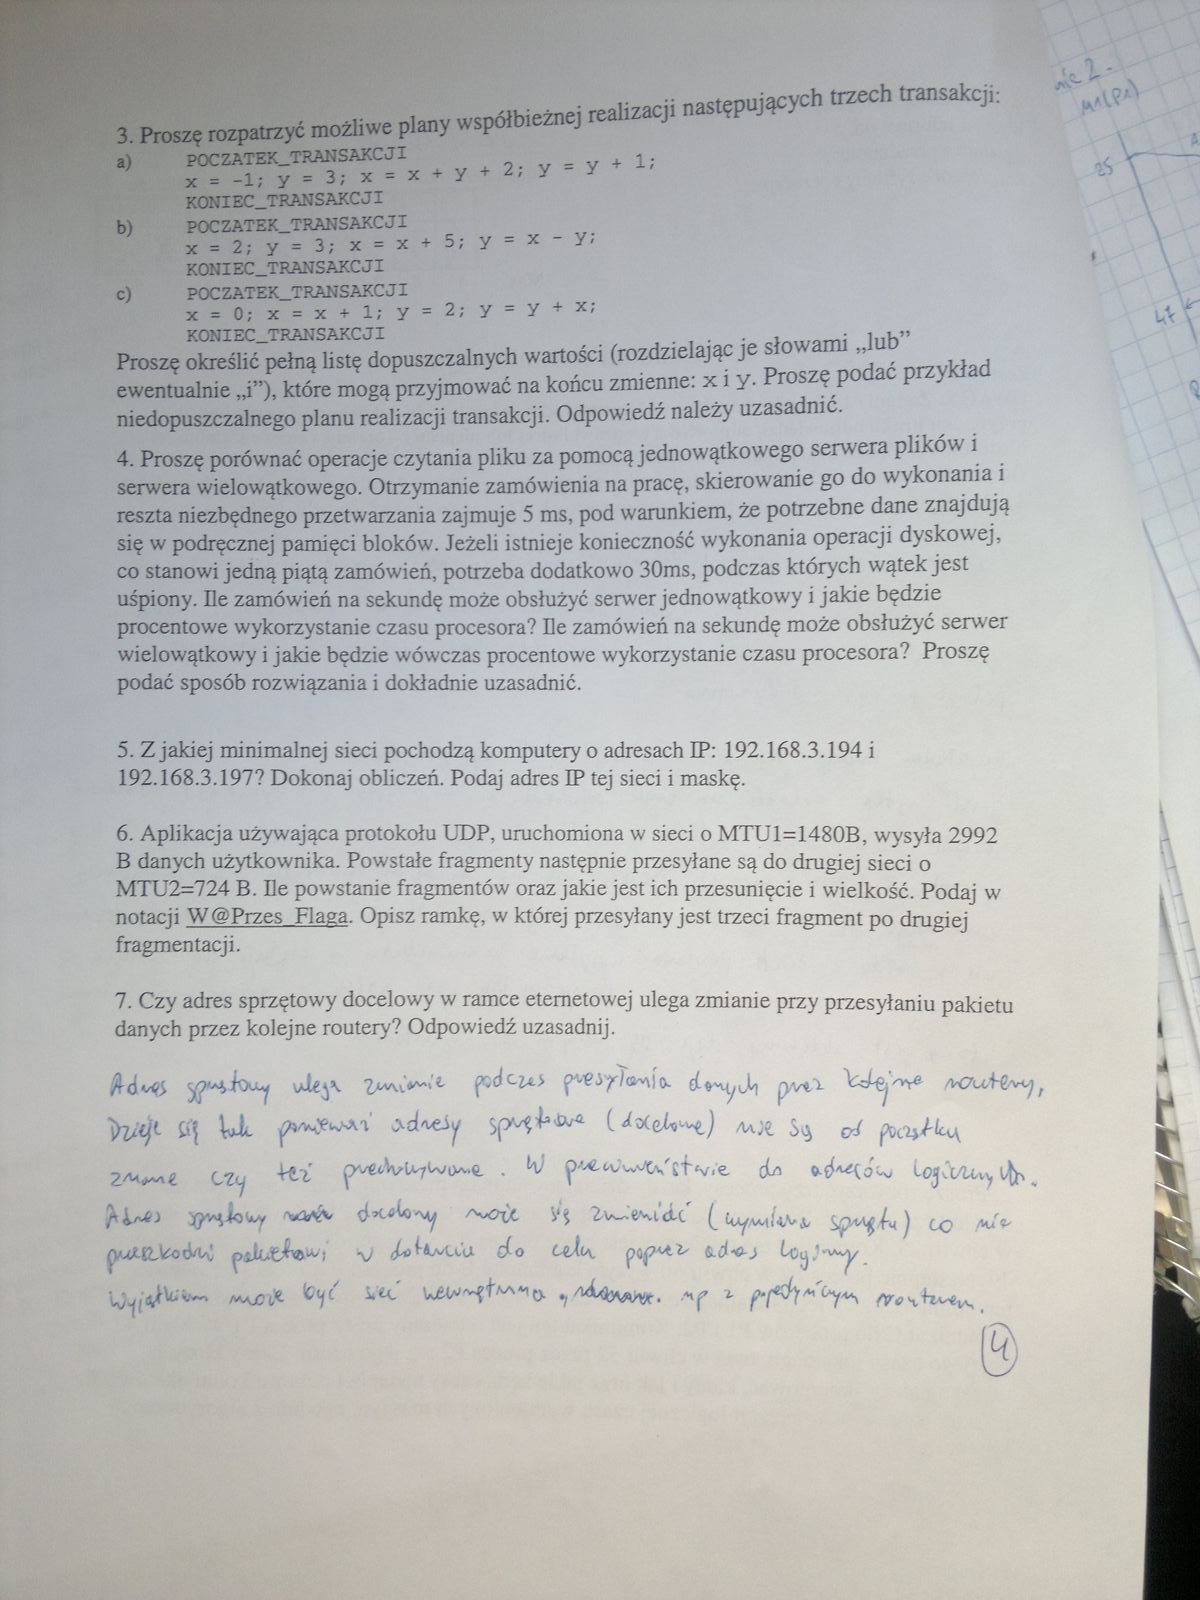 3. Proszę rozpatrzyć możliwe plany współbieżnej realizacji następujących trzech transakcji:
a) POCZATEK_TRANSAKCJI
x = -1; y = 3; x = x + y + 2; y = y + 1;
KONIEC_TRANSAKCJI
b) POCZATEK_TRANSAKCJI
x = 2; y = 3; x = x + 5; y = x - y;
KONIEC_TRANSAKCJI
c) POCZATEK_TRANSAKCJI
x = 0; x = x + 1; y = 2; y = y + x;
KONIEC_TRANSAKCJI
Proszę określić pełną listę dopuszczalnych wartości (rozdzielając je słowami „lub”
ewentualnie „i”), które mogą przyjmować na końcu zmienne: x i y. Proszę podać przykład
niedopuszczalnego planu realizacji transakcji. Odpowiedź należy uzasadnić.
4. Proszę porównać operacje czytania pliku za pomocą jednowątkowego serwera plików i
serwera wielowątkowego. Otrzymanie zamówienia na pracę, skierowanie go do wykonania i
reszta niezbędnego przetwarzania zajmuje 5 ms, pod warunkiem, że potrzebne dane znajdują
się w podręcznej pamięci bloków. Jeżeli istnieje konieczność wykonania operacji dyskowej,
co stanowi jedną piątą zamówień, potrzeba dodatkowo 30ms, podczas których wątek jest
uśpiony. Ile zamówień na sekundę może obsłużyć serwer jednowątkowy i jakie będzie
procentowe wykorzystanie czasu procesora? Ile zamówień na sekundę może obsłużyć serwer
wielowątkowy i jakie będzie wówczas procentowe wykorzystanie czasu procesora? Proszę
podać sposób rozwiązania i dokładnie uzasadnić.
5. Z jakiej minimalnej sieci pochodzą komputery o adresach IP: 192.168.3.194 i
192.168.3.197? Dokonaj obliczeń. Podaj adres IP tej sieci i maskę.
6. Aplikacja używająca protokołu UDP, uruchomiona w sieci o MTU1=1480B, wysyła 2992
B danych użytkownika. Powstałe fragmenty następnie przesyłane są do drugiej sieci o
MTU2=724 B. Ile powstanie fragmentów oraz jakie jest ich przesunięcie i wielkość. Podaj w
notacji W@Przes_Flaga. Opisz ramkę, w której przesyłany jest trzeci fragment po drugiej
fragmentacji.
7. Czy adres sprzętowy docelowy w ramce eternetowej ulega zmianie przy przesyłaniu pakietu
danych przez kolejne routery? Odpowiedź uzasadnij.
Adres sprzętowy ulega zmianie podczas przesyłania danych przez kolejne routery,
Dzieje się tak ponieważ adresy sprzętowe (docelowe) nie są od początku
znane czy też przechowywane. W przeciwieństwie do adresów logicznych.
Adres sprzętowy docelowy może się zmienić (wymiana sprzętu) co nie
przeszkodzi pakietowi w dotarciu do celu poprzez adres logiczny.
Wyjątkiem może być sieć wewnętrzna, np z pojedynczym routerem.
4
nie 2.
M1(P1)
25
47